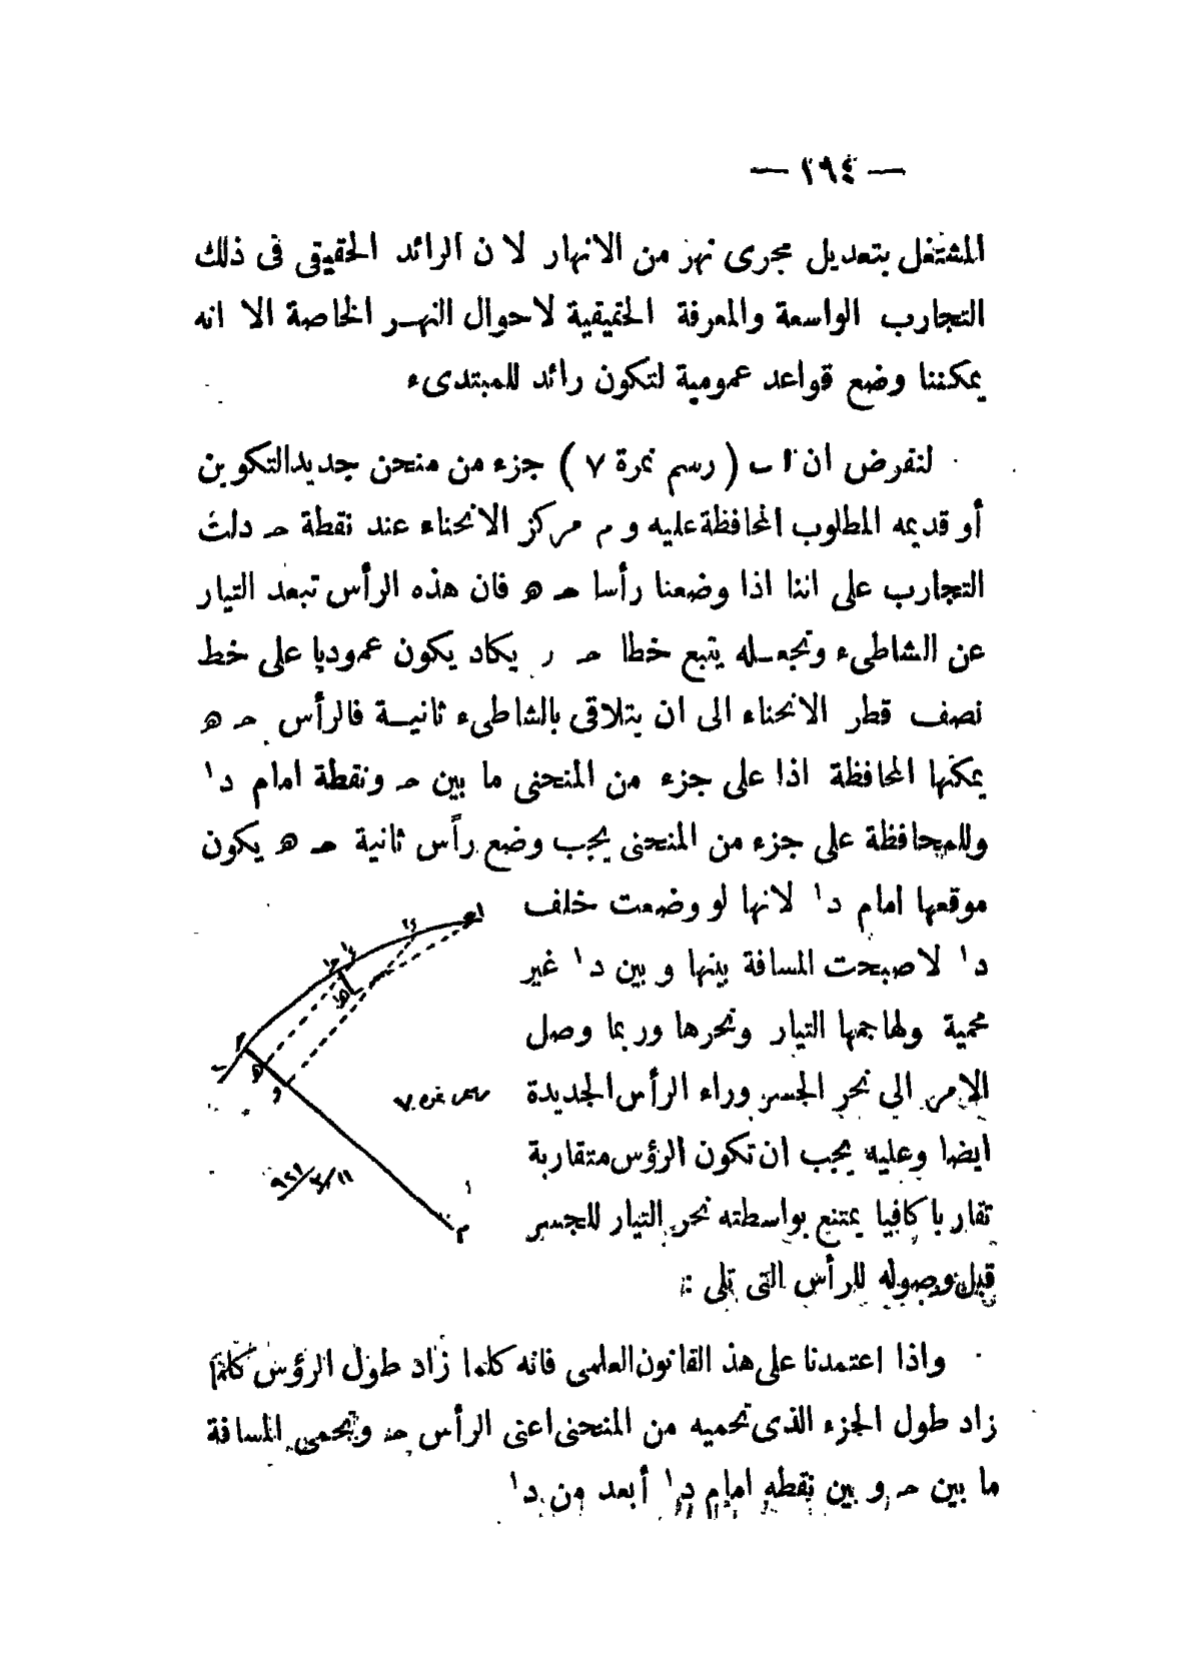 — ٢٩٤ —
المشتغل بتعديل مجرى نهر من الانهار لان الرائد الحقيقى فى ذلك
التجارب الواسعة والمعرفة الحقيقية لاحوال النهر الخاصة الا انه
يمكننا وضع قواعد عمومية لتكون رائد للمبتدىء
لنفرض ان ا ب ( رسم نمرة ٧ ) جزء من منحن جديد التكوين
أو قديمه المطلوب المحافظة عليه و م مركز الانحناء عند نقطة حـ دلت
التجارب على اننا اذا وضعنا رأسا حـ هـ فان هذه الرأس تبعد التيار
عن الشاطىء وتجعله يتبع خطا حـ ر يكاد يكون عموديا على خط
نصف قطر الانحناء الى ان يتلاقى بالشاطىء ثانية فالرأس حـ هـ
يمكنها المحافظة اذا على جزء من المنحنى ما بين حـ ونقطة امام د١
وللمحافظة على جزء من المنحنى يجب وضع رأس ثانية حـ هـ يكون
موقعها امام د١ لانها لو وضعت خلف
د١ لاصبحت المسافة بينها و بين د١ غير
محمية ولهاجمها التيار ونحرها وربما وصل
الامر الى نحر الجسر وراء الرأس الجديدة
ايضا وعليه يجب ان تكون الرؤس متقاربة
تقاربا كافيا يمتنع بواسطته نحر التيار للجسر
قبل وصوله للرأس التى تلى :
رسم نمره ٧
واذا اعتمدنا على هذ القانون العلمى فانه كلما زاد طول الرؤس كلما
زاد طول الجزء الذى تحميه من المنحنى اعنى الرأس حـ و تحمى المسافة
ما بين حـ و بين نقطه امام د١ أبعد من د١